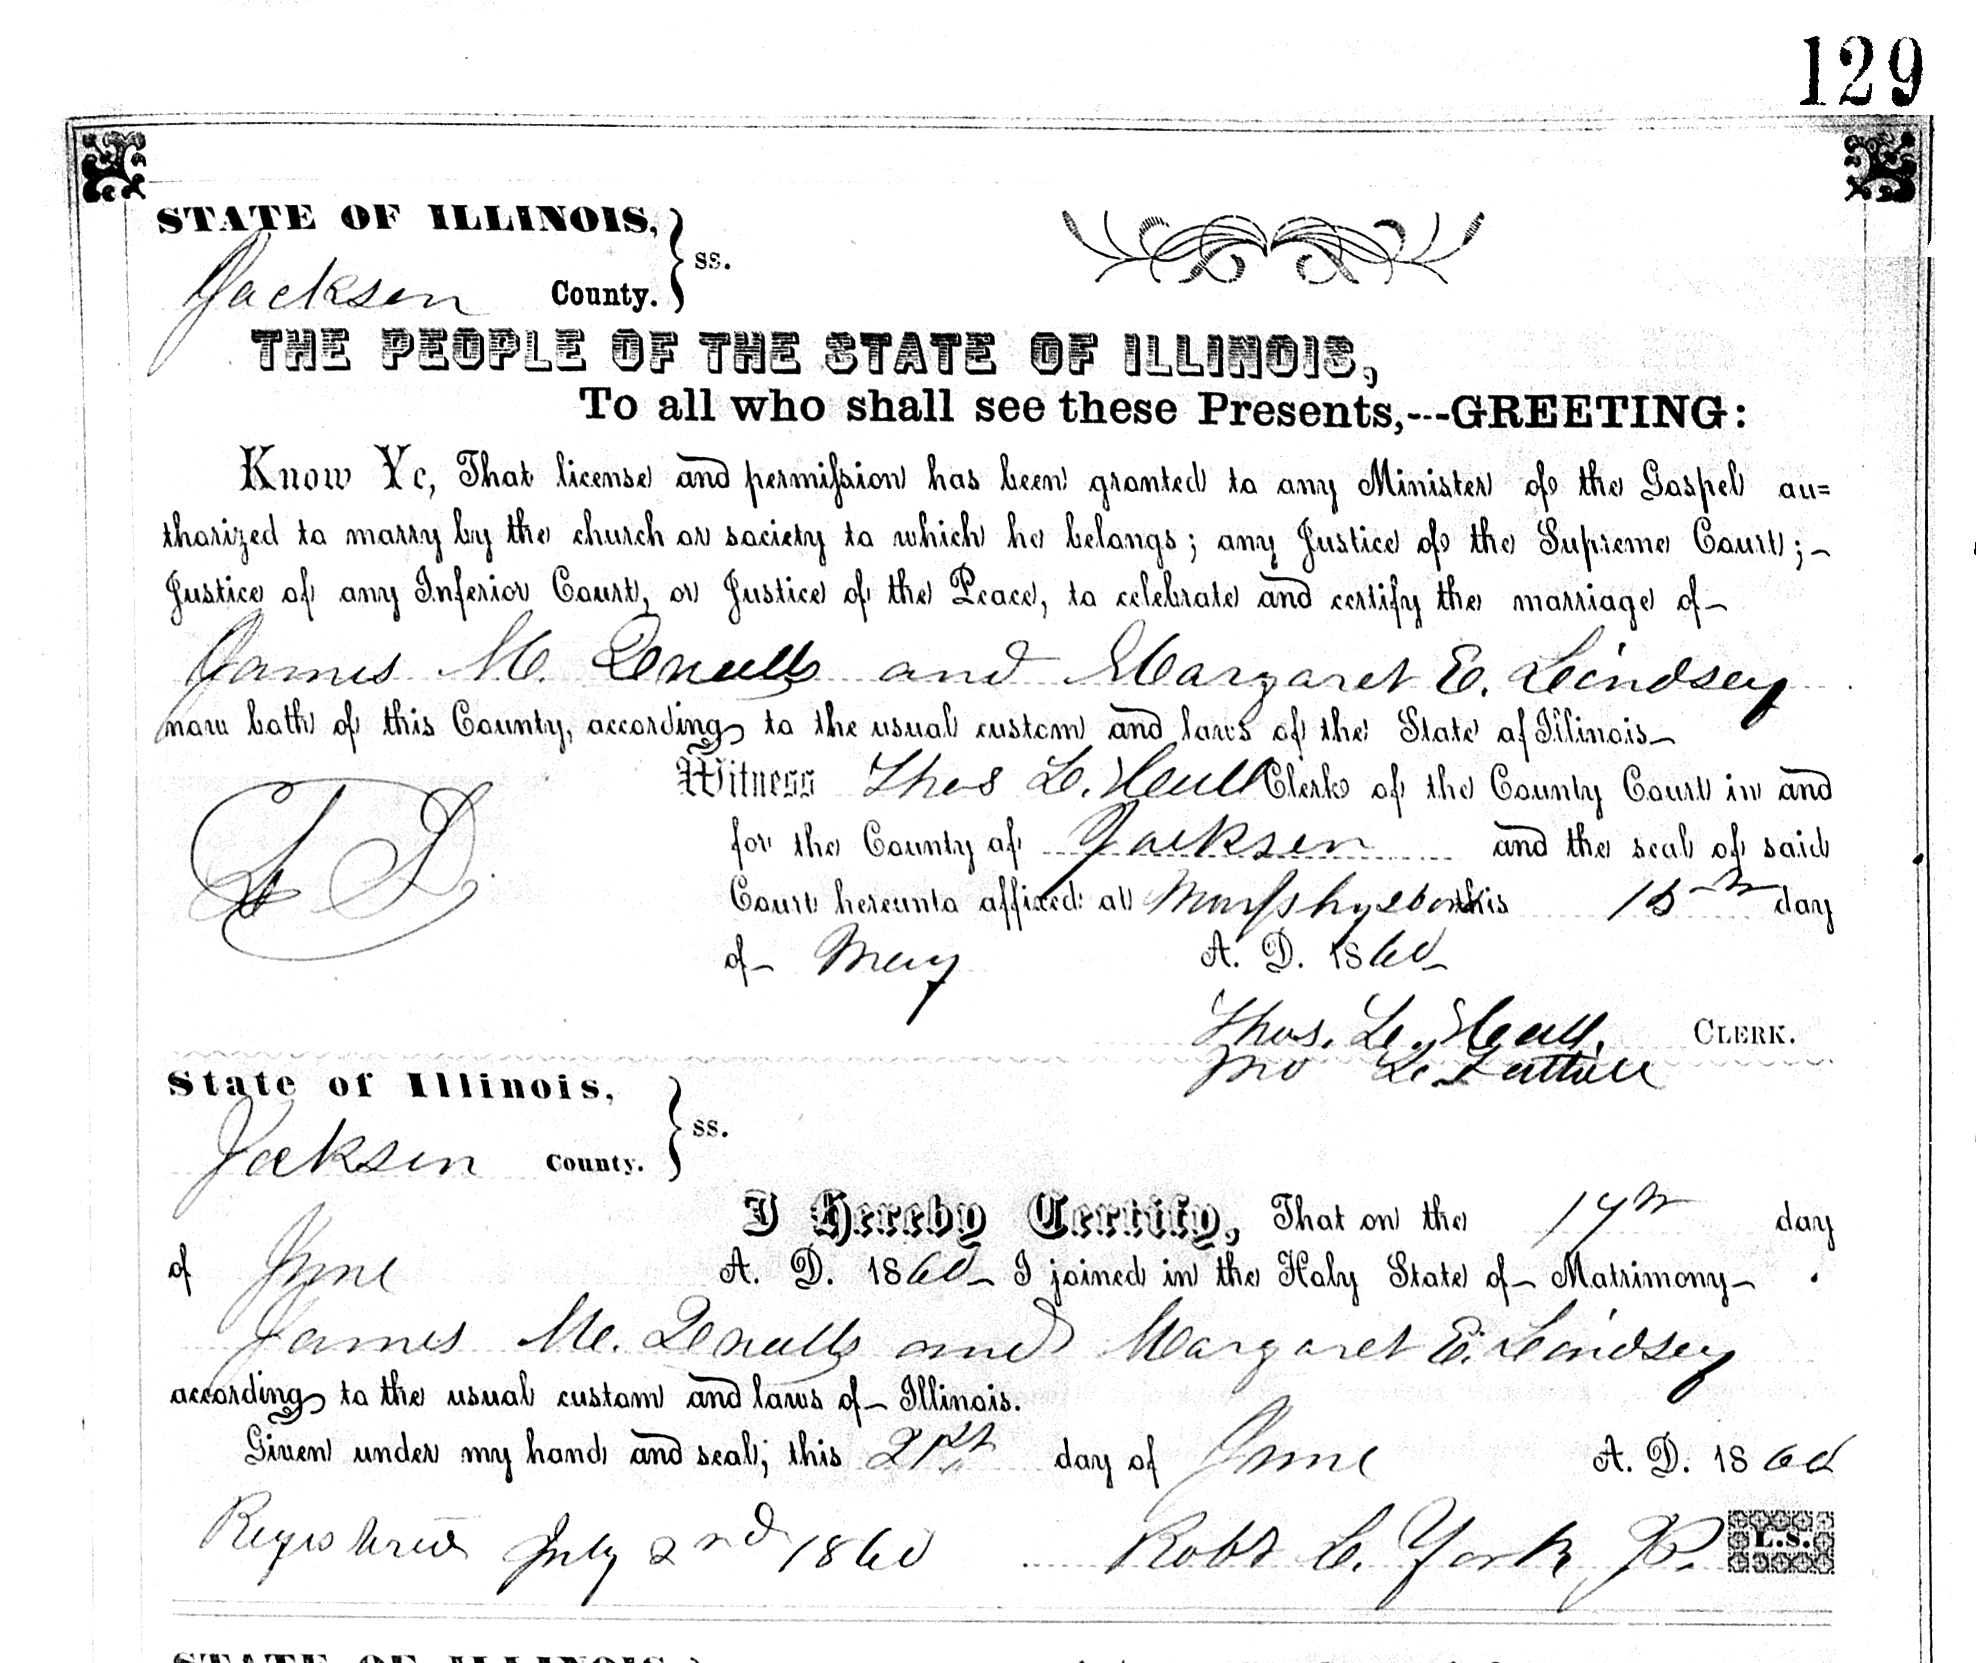 129
STATE OF ILLINOIS,
Jackson County. } ss.
THE PEOPLE OF THE STATE OF ILLINOIS,
To all who shall see these Presents,---GREETING:
Know Ye, That license and permission has been granted to any Minister of the Gospel au=
thorized to marry by the church or society to which he belongs; any Justice of the Supreme Court;-
Justice of any Inferior Court, or Justice of the Peace, to celebrate and certify the marriage of-
James M. and Margaret E. Lindsey
now both of this County, according to the usual custom and laws of the State of Illinois-
Witness Thos L. Clerk of the County Court in and
for the County of Jackson and the seal of said
Court hereunto affixed at Murphysboro this 15th day
of May A. D. 1860
Thos. L. CLERK.
State of Illinois,
Jackson County. } ss.
I Hereby Certify, That on the 17th day
of June A. D. 1860 I joined in the Holy State of Matrimony-
James M. and Margaret E. Lindsey
according to the usual custom and laws of Illinois.
Given under my hand and seal, this 21st day of June A. D. 1860
Registered July 2nd 1860 Robt L. York JP. L.S.
STATE OF ILLINOIS